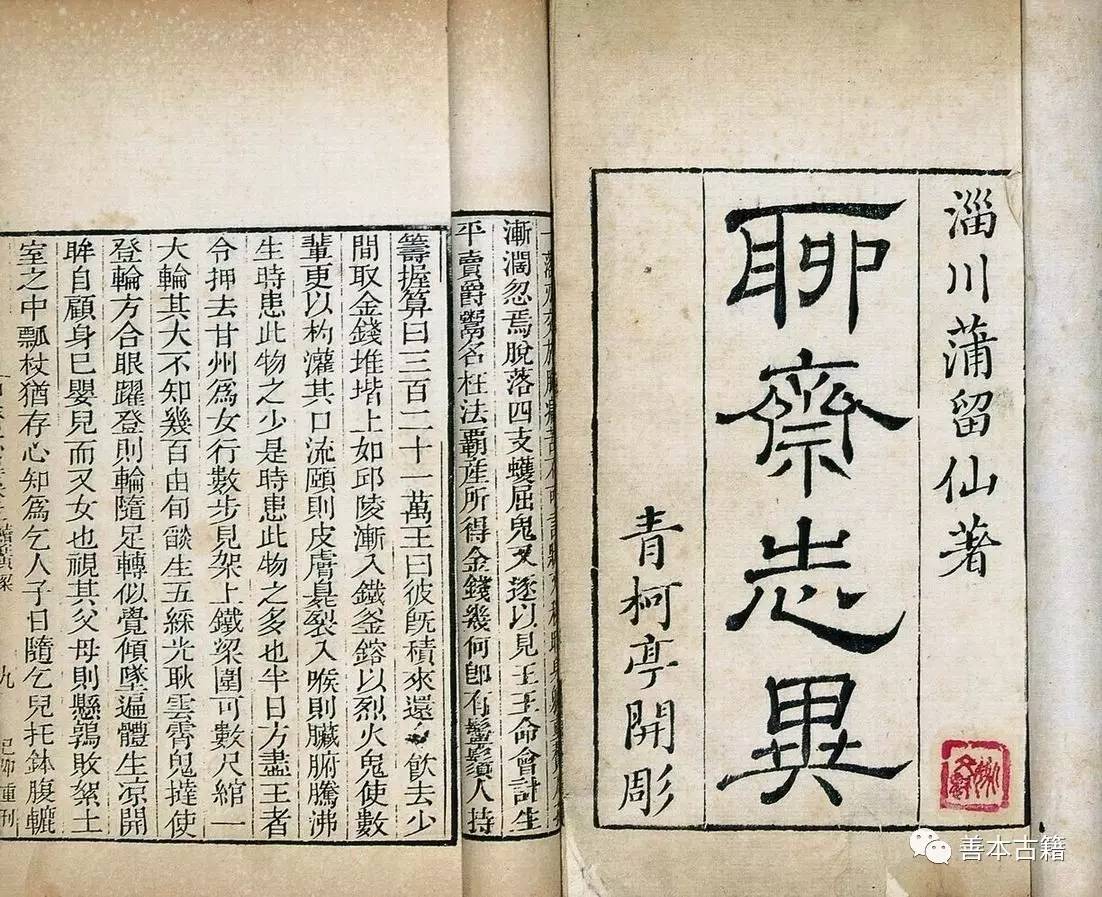 淄川蒲留仙著
聊齋志異
青柯亭開彫
漸濶忽焉脫落四支蠖屈鬼又遂以見王王命會計生
平賣爵鬻名枉法霸産所得金錢幾何卽有鬡鬚人持
籌握算曰三百二十一萬王曰彼旣積來還飲去少
間取金錢堆堦上如邱陵漸入鐵釜鎔以烈火鬼使數
輩更以杓灌其口流頤則皮膚臭裂入喉則臟腑騰沸
生時患此物之少是時患此物之多也半日方盡王者
令押去甘州爲女行數步見架上鐵梁圍可數尺綰一
大輪其大不知幾百由旬燄生五綵光耿雲霄鬼撻使
登輪方合眼躍登則輪隨足轉似覺傾墜遍體生凉開
眸自顧身已嬰兒而又女也視其父母則懸鶉敗絮土
室之中瓢杖猶存心知爲乞人子日隨乞兒托鉢腹轆
九
善本古籍